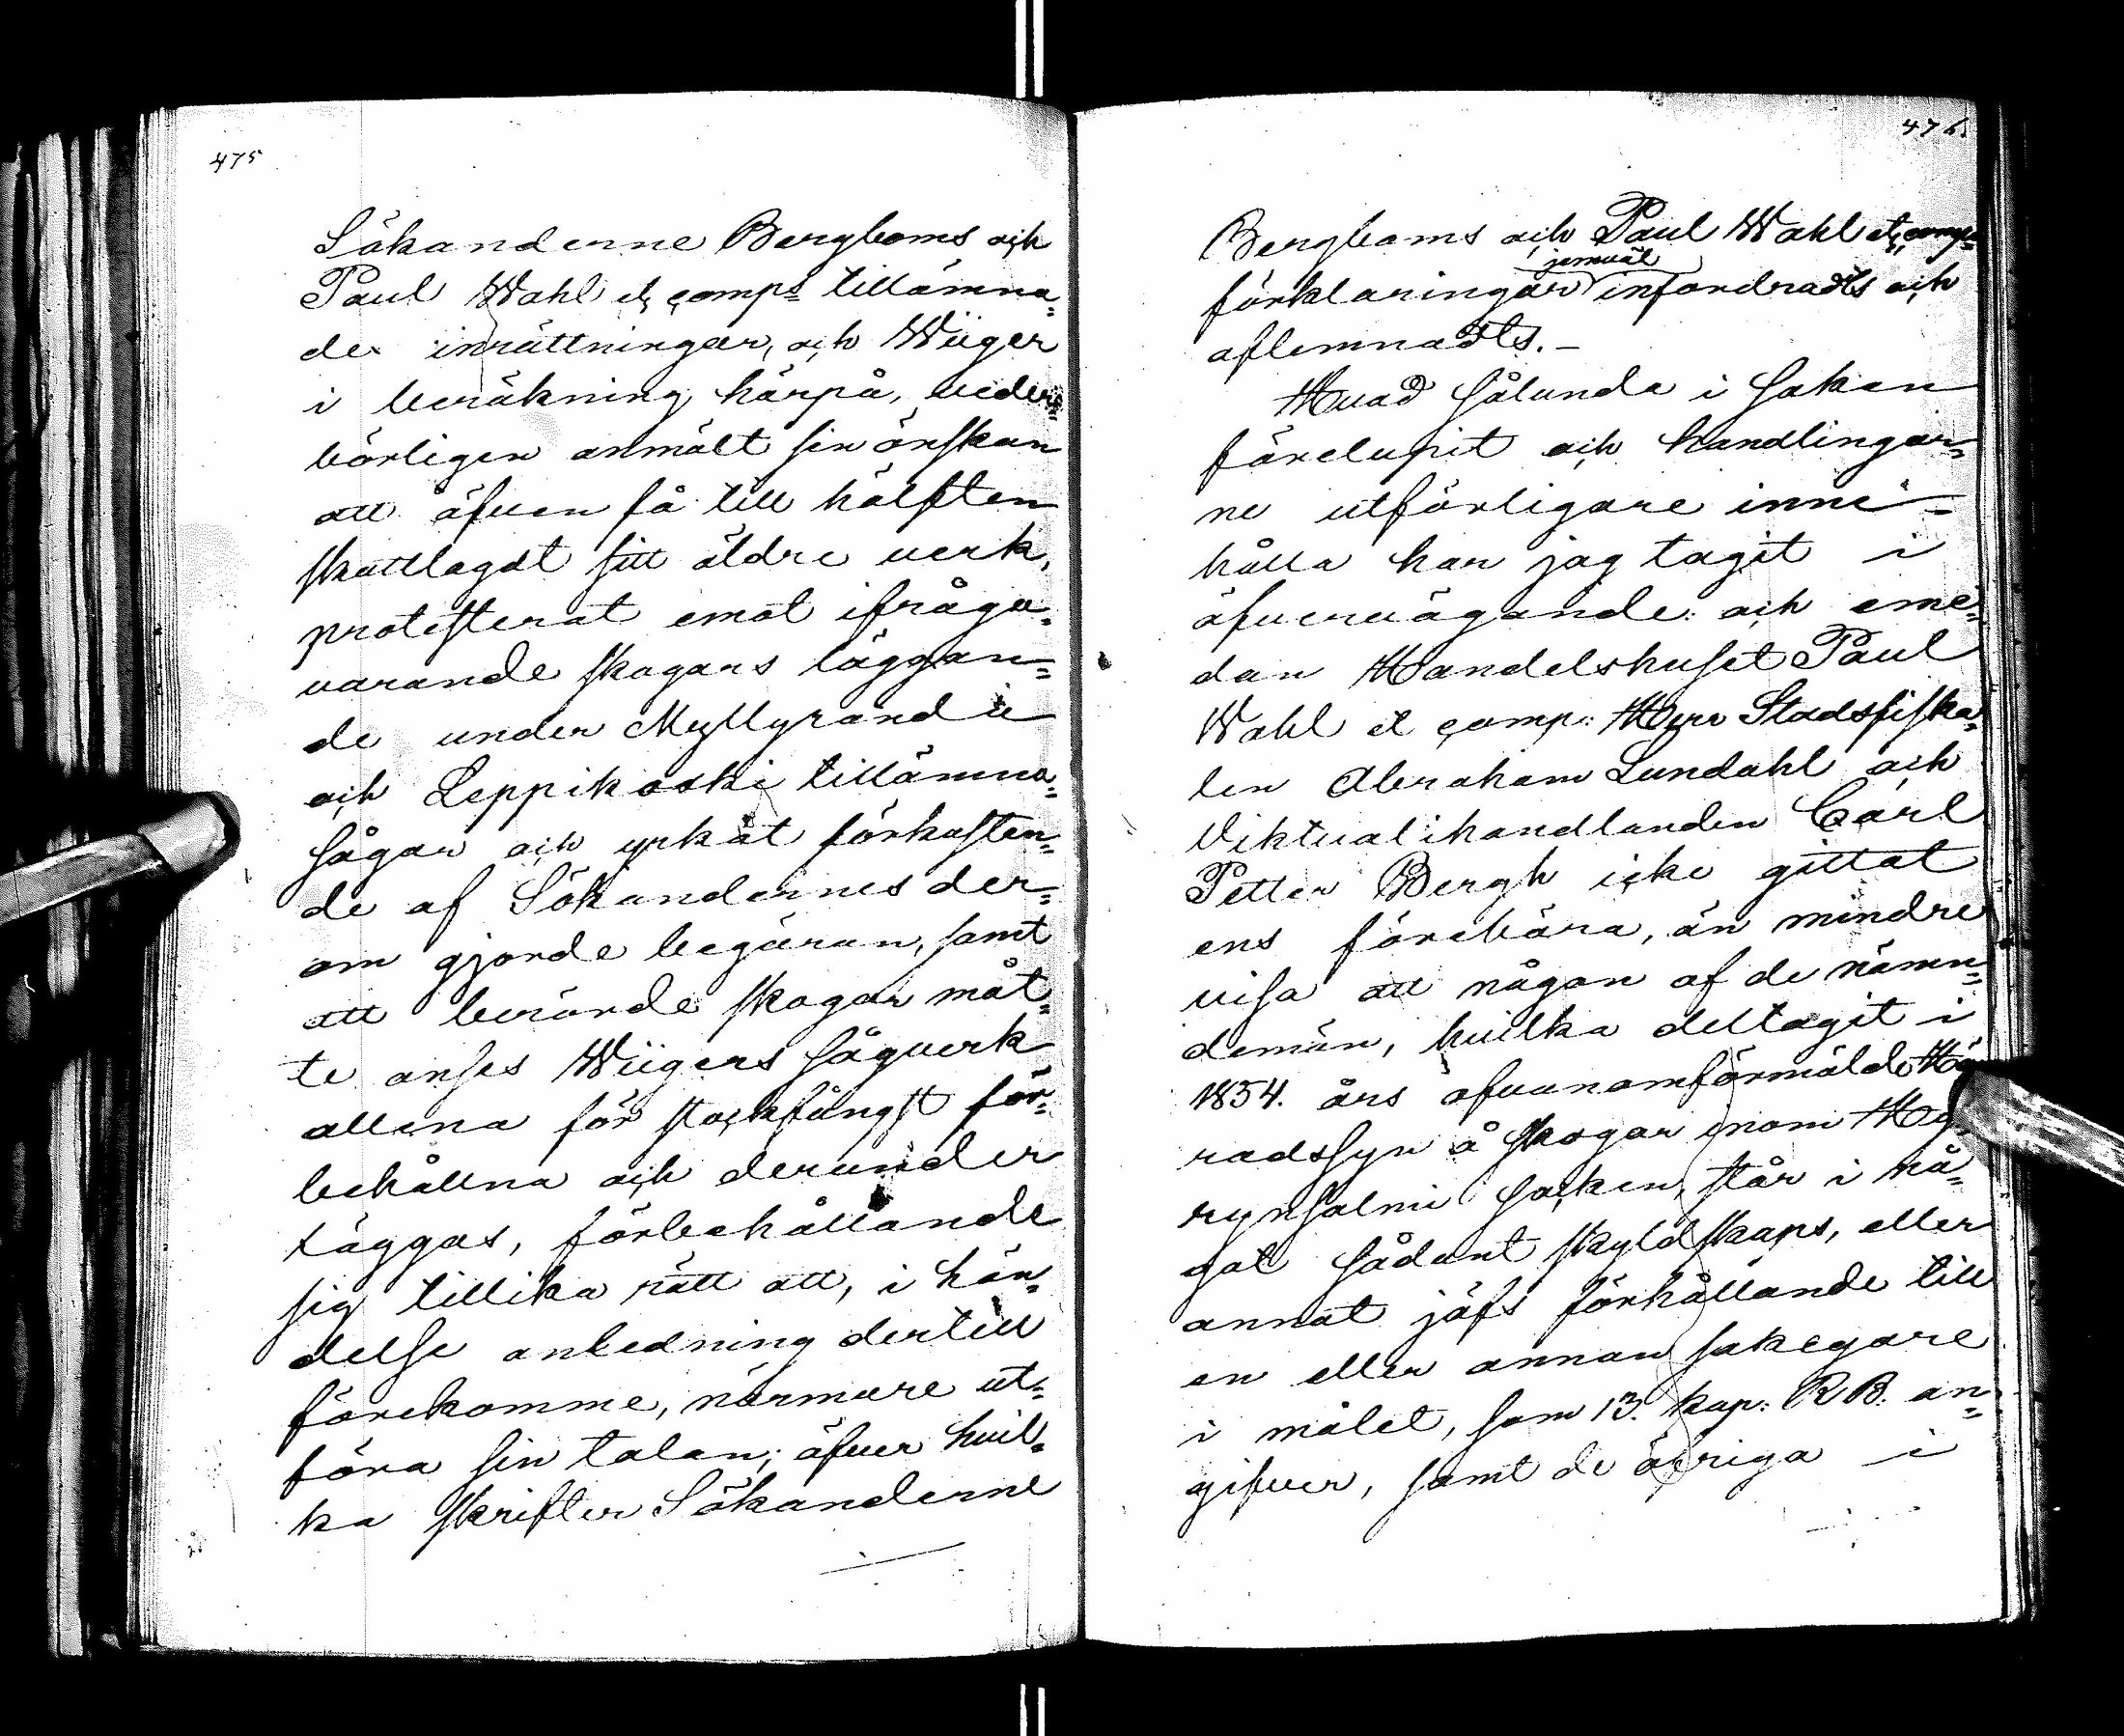 475
Sökanderne Bergboms och
Paul Wahl et comps tillämna-
de inrättningar, och Wiiger
i beräkning härpå, veder-
börligen anmält sin önskan
att äfven få till hälften
skattlagdt sitt äldre verk,
protesterat emot ifråga-
varande skogars läggan-
de under Myllyranda
och Leppikoski tillämna-
sågar och yrkat förkasten-
de af Sökandernes der-
om gjorde begäran, samt
att berörde skogar måt-
te anses Wiigers sågverk
allena för stockfångst för-
behållna och derunder
läggas, förbehållande
sig tillika rätt att, i hän-
delse anledning dertill
förekomme, närmare ut-
föra sin talan; öfver hvil-
ka skrifter Sökanderne
476.
Bergboms och Paul Wahl et comps
förklaringar jemväl infordradts och
aflemnadts.-
Hvad sålunda i saken
förelupit och handlingar-
ne utförligare inne-
hålla har jag tagit i
öfvervägande: och eme-
dan Handelshuset Paul
Wahl et comp: Herr Stadsfiska-
len Abraham Lundahl och
Viktualihandlanden Carl
Petter Bergh icke gittat
ens förebära, än mindre
visa att någon af de nämn-
demän, hvilka deltagit i
1854. års ofvanomförmälde Hä-
radssyn å skogar inom Hy-
rynsalmi socken, står i nå-
got sådant skyldskaps, eller
annat jäfs förhållande till
en eller annan sakegare
i målet, som 13. kap: R B. an-
gifver, samt de öfriga i